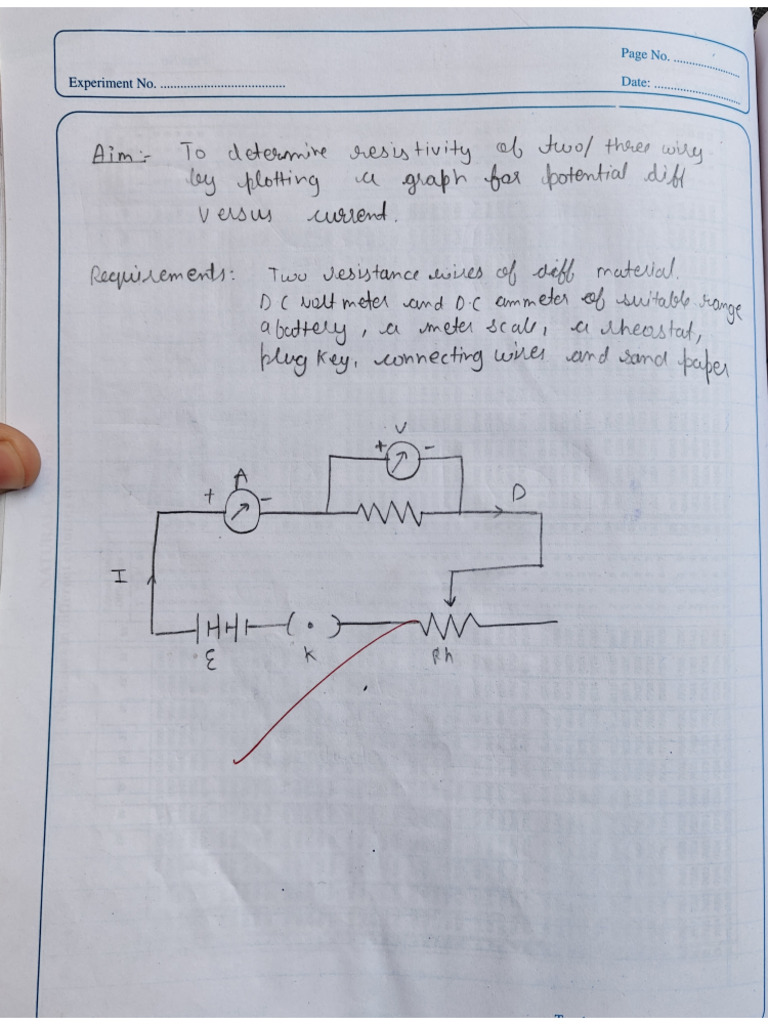 Page No. ......................
Experiment No. ....................................
Date: .........................
Aim:- To determine resistivity of two/three wiry
by plotting a graph for potential diff
versus current.
Requirements: Two resistance wires of diff material.
DC voltmeter and D.C ammeter of suitable range
a battery, a meter scale, a rheostat,
plug key, connecting wires and sand paper
V
+ -
A
+ -
D
I
ε
K
Rh